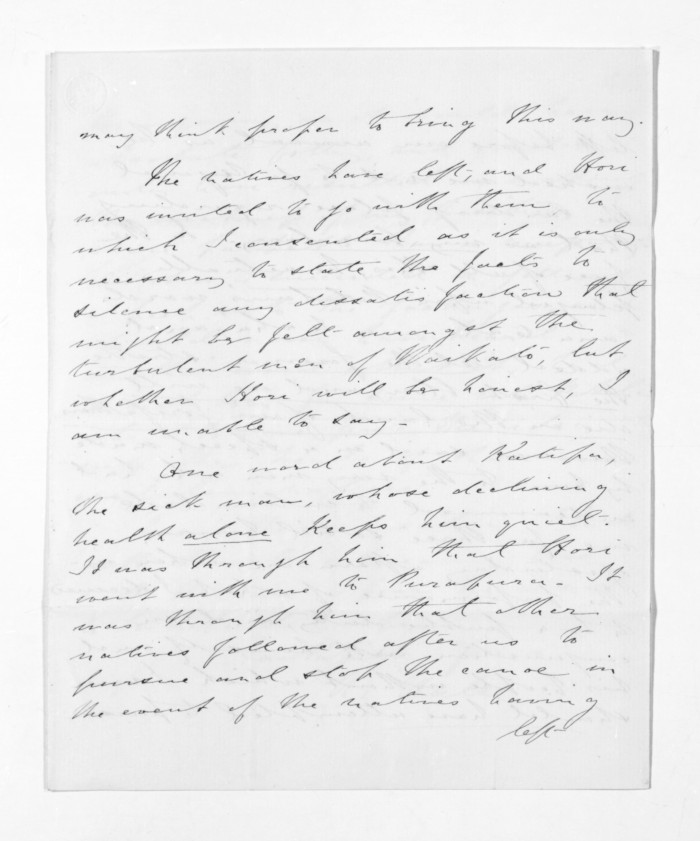 may think proper to bring this way.
The natives have left, and Hori
was invited to go with them to
which I consented as it is only
necessary to state the facts to
silence any dissatisfaction that
might be felt amongst the
turbulent men of Waikato, but
whether Hori will be honest, I
am unable to say -
One word about Katipa,
the sick man, whose declining
health alone keeps him quiet.
It was through him that Hori
went with me to Purapura - It
was through him that other
natives followed after us to
pursue and stop the canoe in
the event of the natives having
left